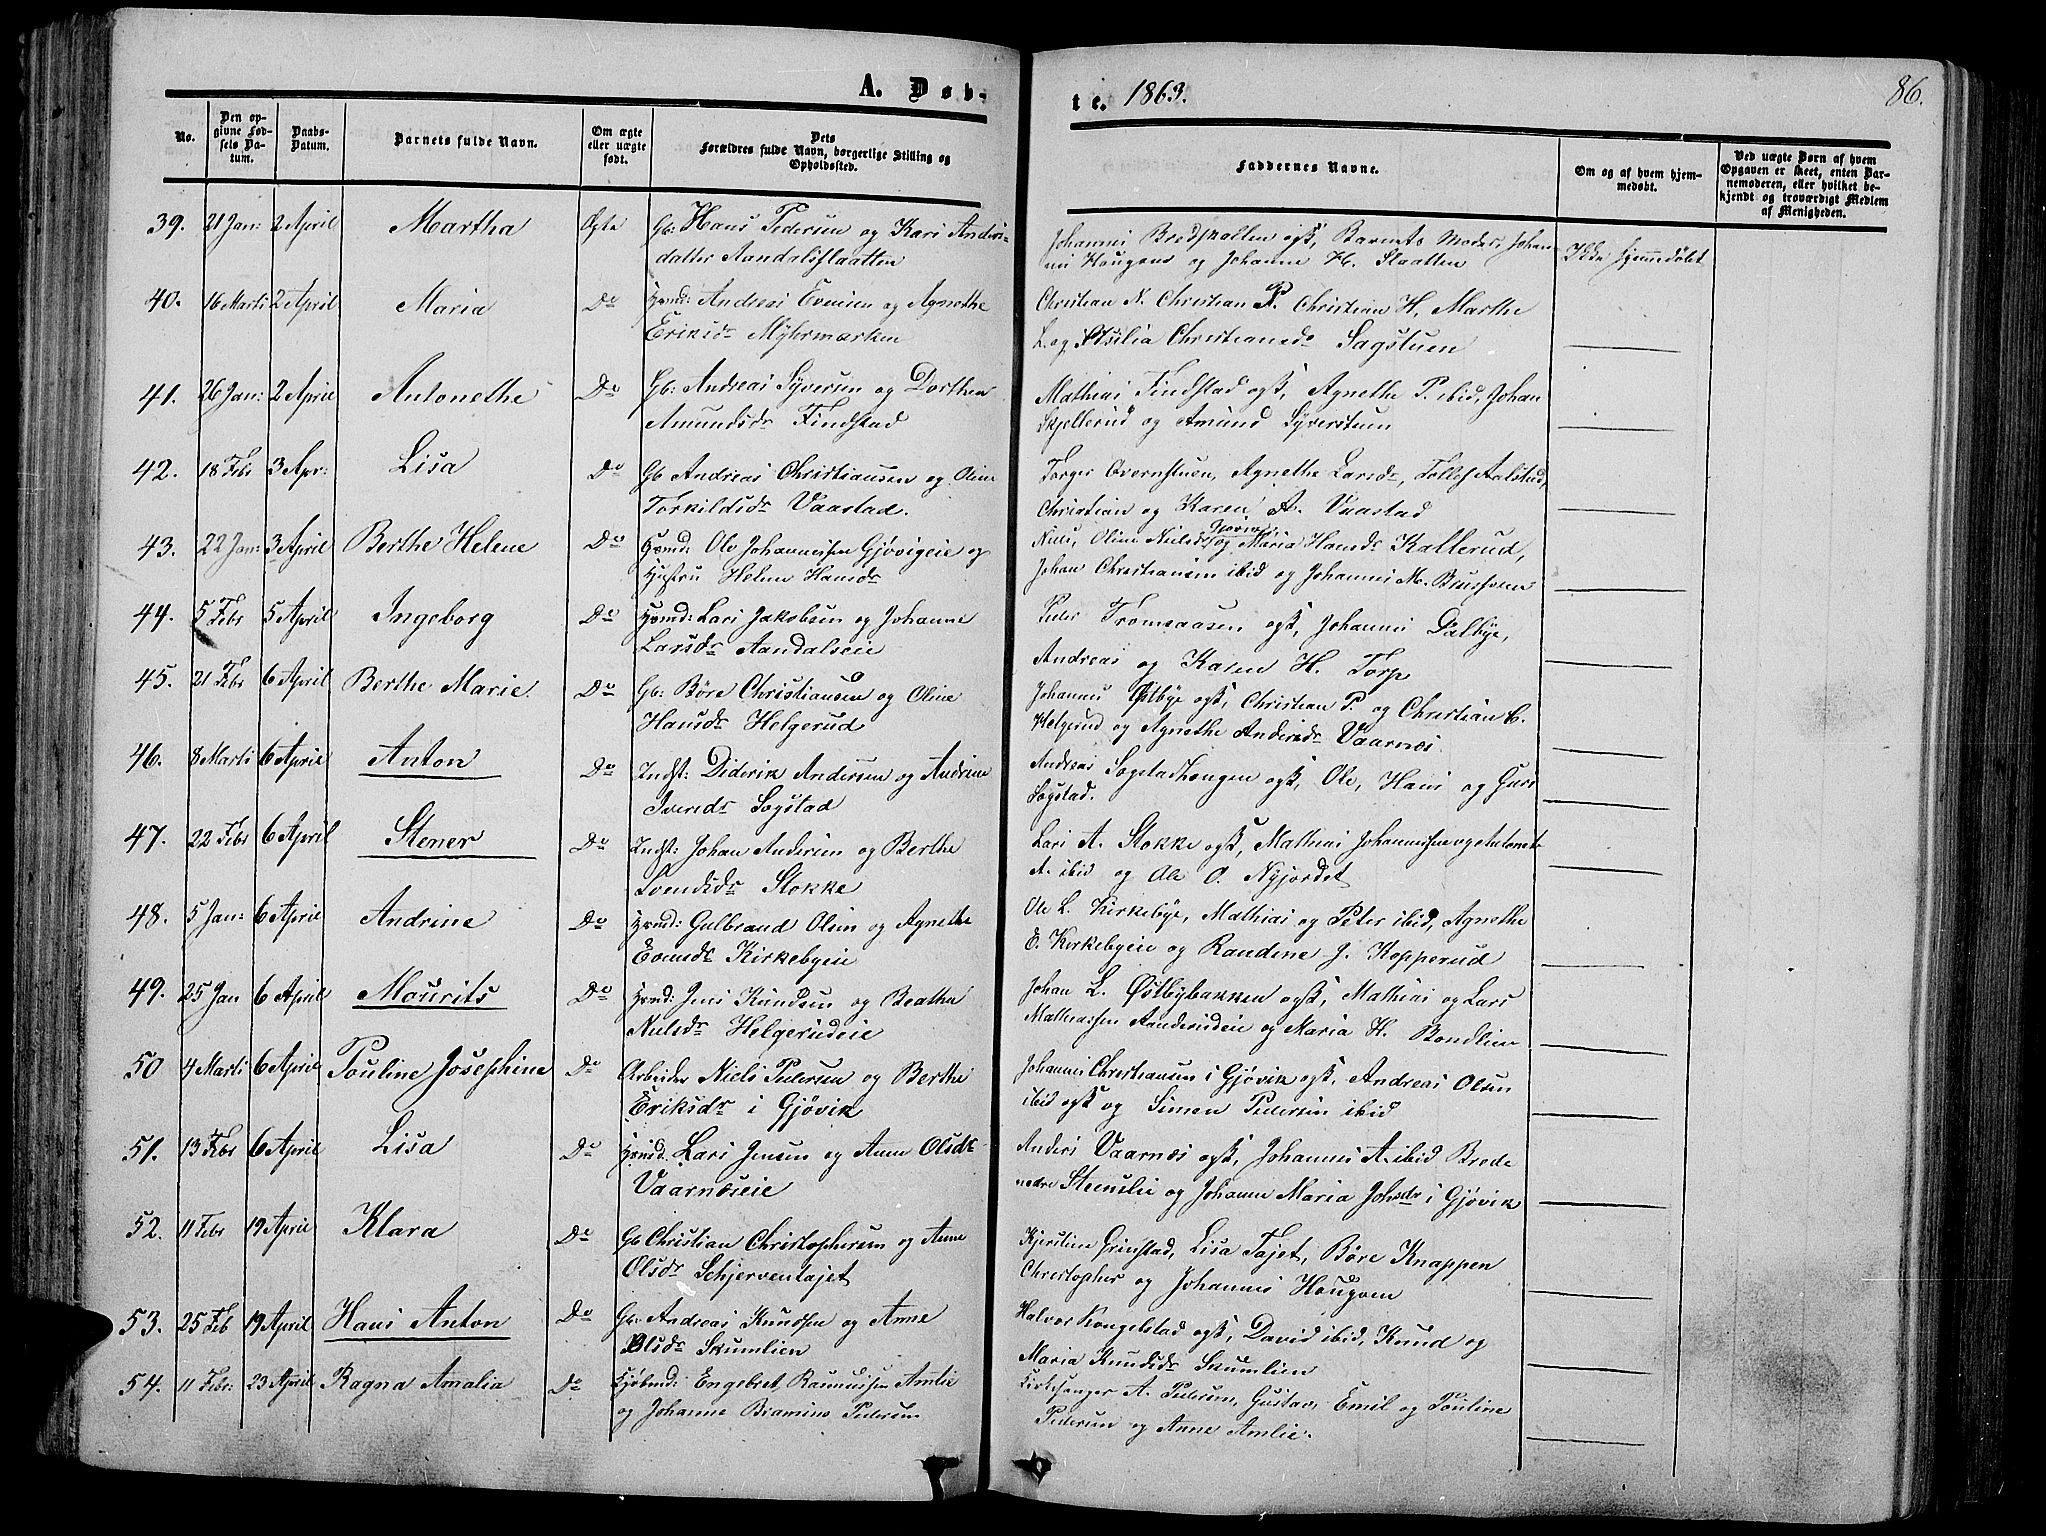 A. Døb-
te. 1863.
86.
No.
Den op-
givne Fød-
sels Da-
tum.
Daabs-
Datum.
Barnets fulde Navn.
Om ægte
eller uægte
født.
Dets
Forældres fulde Navn, borgerlige Stilling og
Opholdssted.
Faddernes Navne.
Om og af hvem hjem-
medøbt.
Ved uægte Børn af hvem
Opgaven er skeet, enten Bar-
nemoderen, eller hvilket be-
kjendt og troværdigt Medlem
af Menigheden.
39. 21 Jan: 2 April Martha Ægte Gb: Hans Pedersen og Kari Anders-
datter Aandalsflaatten
Johannes Bredskallen ogsk, Barnets Moder, Johan-
nes Haugens og Johanne H. Slaatten
Ikke hjemmedøbt
40. 16 Marts 2 April Maria Do Hsmd: Andreas Evensen og Agnethe
Eriksdr Myhrmarken
Christian N. Christian P. Christian H, Marthe
L. og Cesilia Christiansdr Sagstuen
41. 26 Jan: 2 April Antonethe Do Gb: Andreas Syversen og Dorthea
Amundsdr Findstad
Mathias Findstad ogsk, Agnethe P. ibid, Johan
Skjellerud og Amund Syverstuen
42. 18 Febr 3 Apr: Lisa Do Gb Andreas Christiansen og Oline
Torkildsdr Vaastad.
Torger Overnstuen, Agnethe Larsdr, Tollef Aalstad,
Christian og Karen A. Vaastad
43. 22 Jan: 3 April Berthe Helene Do Hsmd: Ole Johannessen Gjøvigeie og
Hustru Helene Hansdr
Niels, Oline Nielsdr Gjøvik og Maria Hansdr Kallerud,
Johan Christiansen ibid og Johannes M. Bruisveen
44. 5 Febr 5 April Ingeborg Do Hsmd: Lars Jakobsen og Johanne
Larsdr Aandalseie
Peder Tromsaasen ogsk, Johannes Dalbye,
Andreas og Karen H. Torp
45. 21 Febr 6 April Berthe Marie Do Gb: Børe Christiansen og Oline
Hansdr Helgerud
Johannes Østbye ogsk, Christian P. og Christian C.
Helgerud og Agnethe Andersdr Vaarnæs
46. 8 Marts 6 April Anton Do Indst: Diderik Andersen og Andrine
Iversdr Sogstad
Andreas Sogstadhaugen ogsk, Ole, Hans og Guri
Sogstad.
47. 22 Febr 6 April Stener Do Indst: Johan Andersen og Berthe
Svendsdr Stokke
Lars A. Stokke ogsk, Mathias Johannessen og Antonet
A. ibid og Ole O. Nyjordet
48. 5 Jan: 6 April Andrine Do Hsmd: Gulbrand Olsen og Agnethe
Evensdr Kirkebyeie
Ole L. Kirkebye, Mathias og Peter ibid, Agnethe
E. Kirkebyeie og Randine J. Kopperud
49. 25 Jan 6 April Mourits Do Hsmd: Jens Knudsen og Beathe
Nielsdr Helgerudeie
Johan L. Østbybakken ogsk, Mathias og Lars
Mathiassen Aanderudeie og Maria H. Bondlien
50 4 Marts 6 April Pouline Josephine Do Arbeider Niels Pedersen og Berthe
Eriksdr i Gjøvik
Johannes Christiansen i Gjøvik ogsk, Andreas Olsen
ibid ogsk og Simen Pedersen ibid
51. 13 Febr 6 April Lisa Do Hsmd: Lars Jensen og Anne Olsdr
Vaarnæseie
Anders Vaarnæs ogsk, Johannes A. ibid Brede
nedre Steenslie og Johanne Maria Johsdr i Gjøvik
52. 11 Febr 19 April Klara Do Gb Christian Christophersen og Anne
Olsdr Schjerventajet
Kjerstine Grinstad, Lisa Tajet, Børe Knappen
Christopher og Johannes Haugom
53. 25 Feb 19 April Hans Anton Do Gb: Andreas Knudsen og Anne
Olsdr Skumlien
Halvor Kongelstad ogsk, David ibid, Knud og
Maria Knudsdr Skumlien
54. 11 Febr: 23 April Ragna Amalia Do Kjøbmd: Engebret Rasmussen Amlie
og Johanne Bramine Pedersen
Kirkesanger A. Pedersen, Gustav, Emil og Pouline
Pedersen og Anne Amlie.